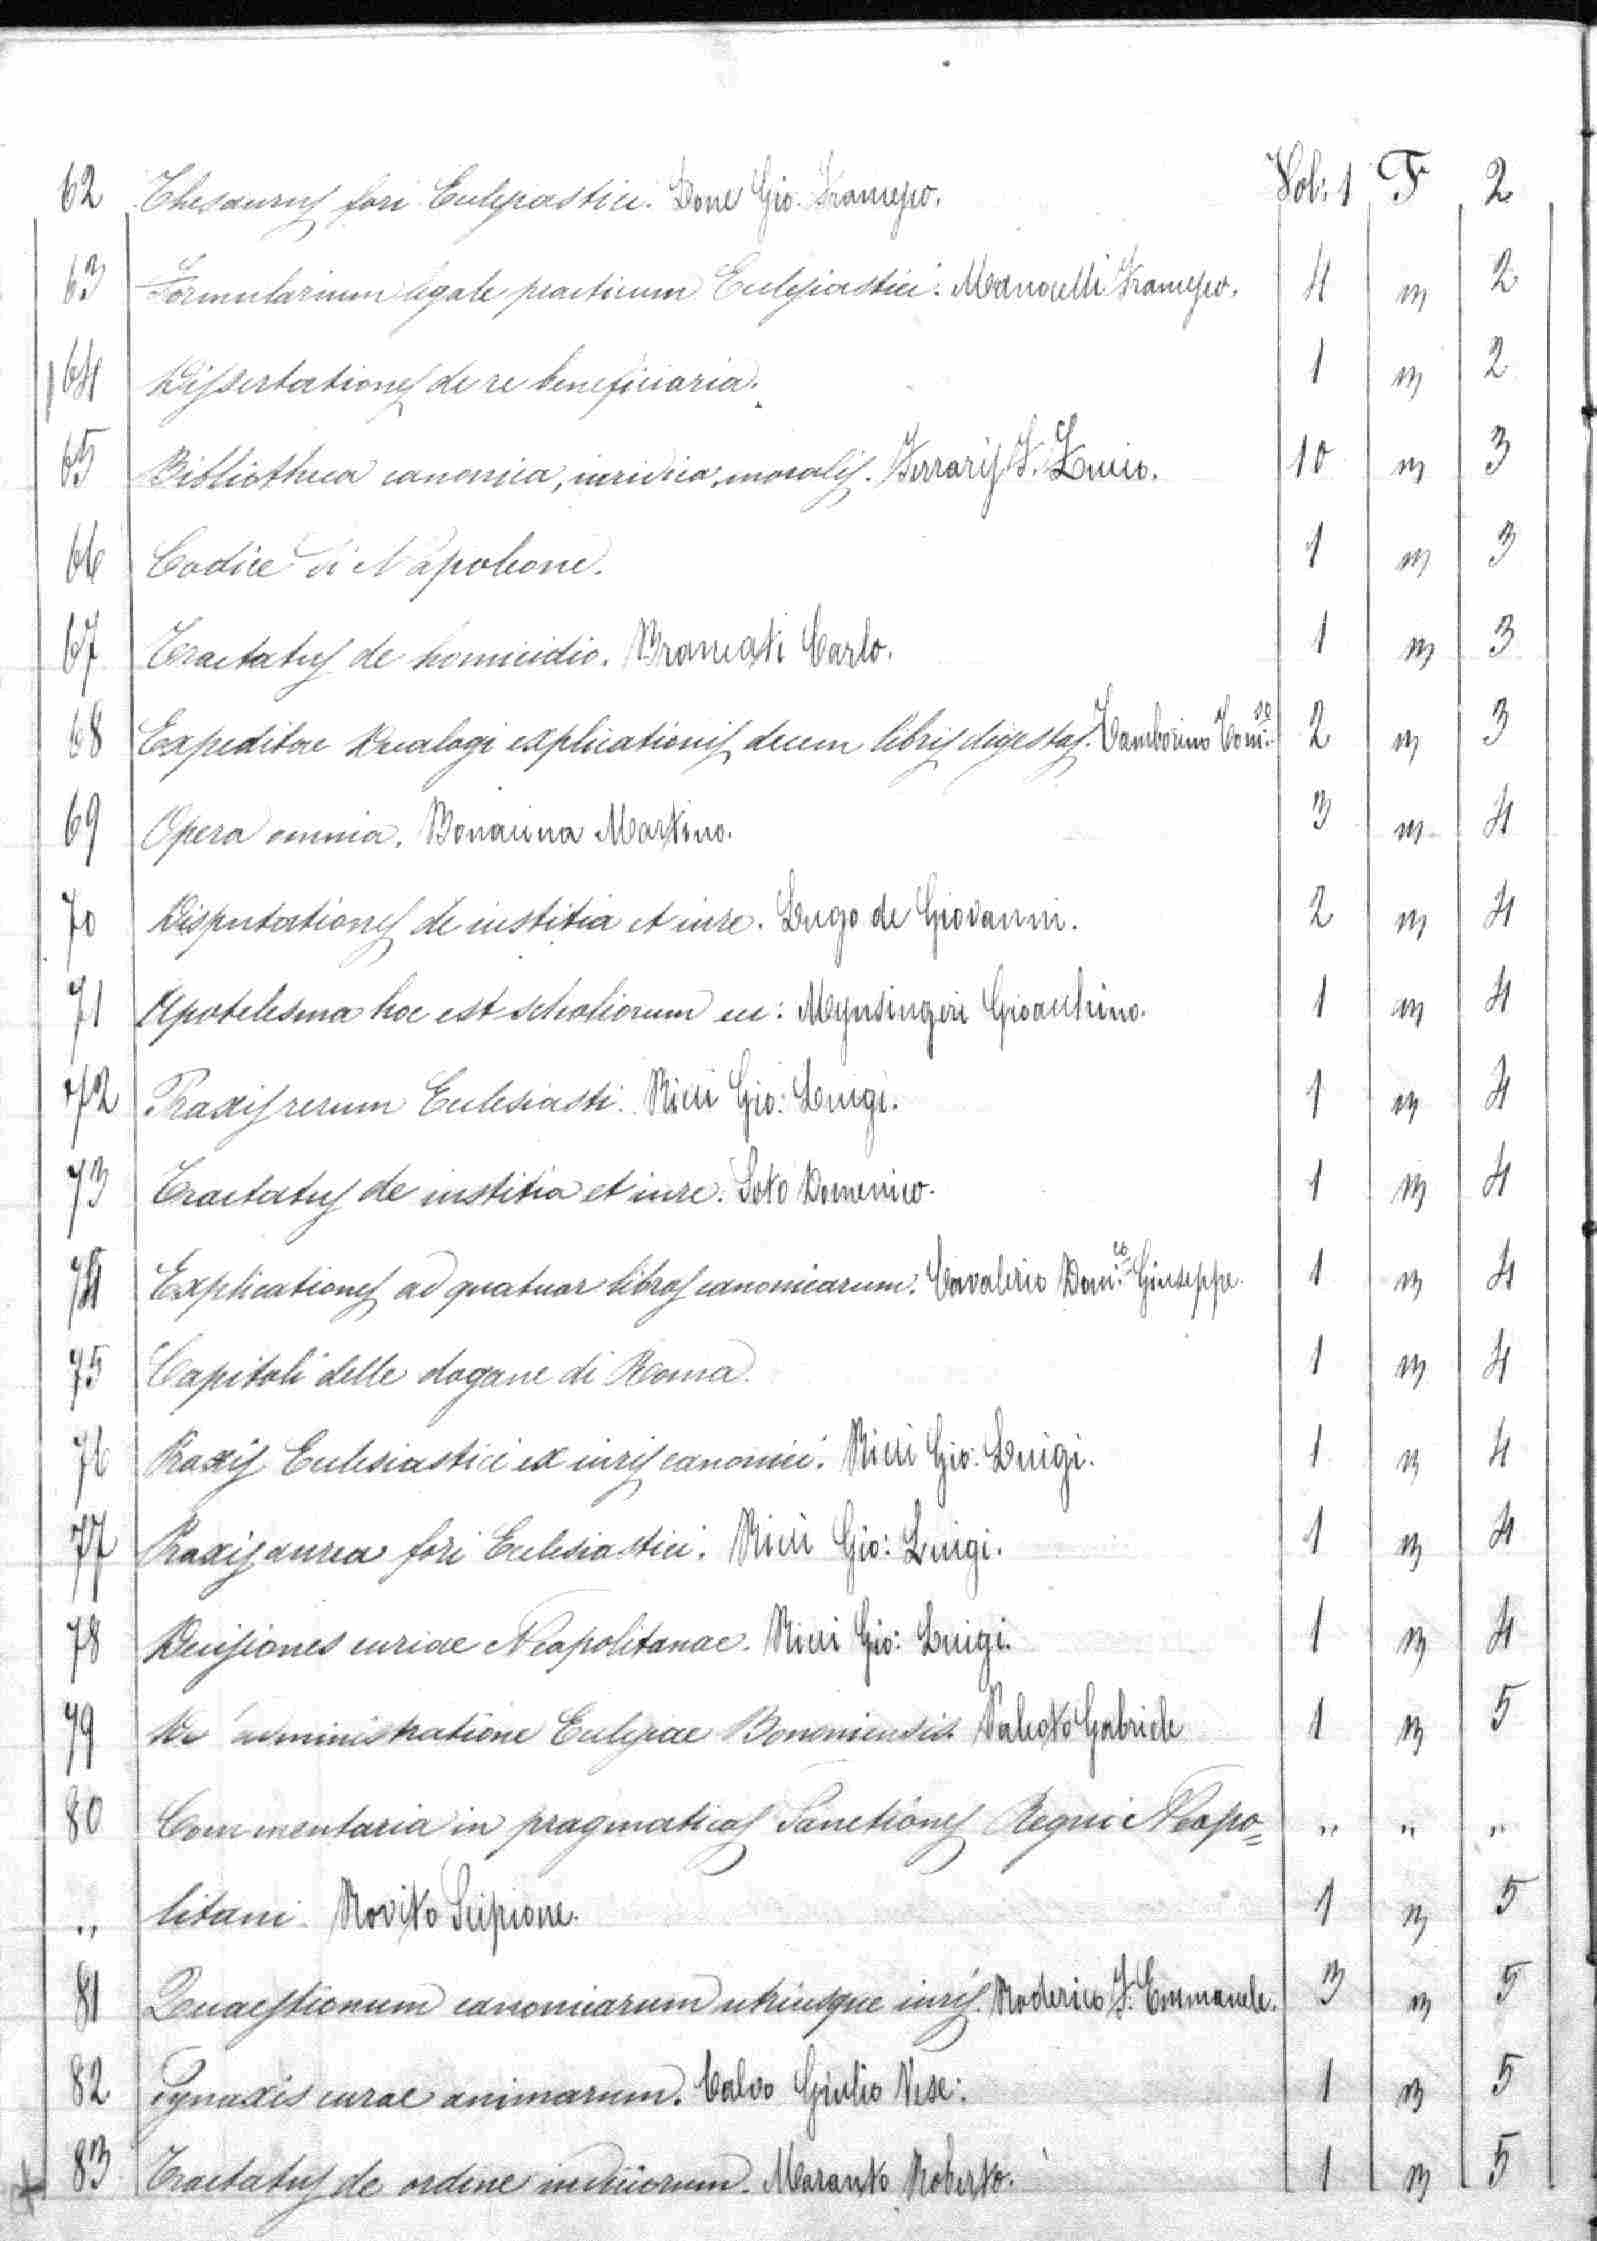 62 Thesaurus fori Eclesiastici. Done Gio. Francesco. Vol: 1 F 2
63 Formularium legale practicum Eclesiastici. Monacelli Francesco. 4 " 2
64 Dissertationes de re beneficiaria. 1 " 2
65 Bibliotheca canonica, iuridica, moralis. Ferraris F. Lucio. 10 " 3
66 Codice di Napoleone. 1 " 3
67 Tractatus de homicidio. Brancati Carlo. 1 " 3
68 Expeditae Decalogi explicationis decem libris digestas. Tamborino Tom.so 2 " 3
69 Opera omnia. Bonacina Martino. 3 " 4
70 Disputationes de iustitia et iure. Lugo de Giovanni. 2 " 4
71 Apotelesma hoc est scholiorum ec: Mynsingeri Gioachino. 1 " 4
72 Praxis rerum Eclesiasti. Ricci Gio: Luigi. 1 " 4
73 Tractatus de iustitia et iure. Soto Domenico. 1 " 4
74 Explicationes ad quatuor libros canonicarum. Cavalerio Dom.co Giuseppe. 1 " 4
75 Capitoli delle dogane di Roma. 1 " 4
76 Praxis Eclesiastici ex iuris canonici. Ricci Gio: Luigi. 1 " 4
77 Praxis aurea fori Eclesiastici. Ricci Gio: Luigi. 1 " 4
78 Decisiones curiae Neapolitanae. Ricci Gio: Luigi. 1 " 4
79 De administratione Eclesiae Bononiensis. Paleoto Gabriele 1 " 5
80 Commentaria in pragmaticas Sanctiones Regni Neapo= " " "
" litani. Rovito Scipione. 1 " 5
81 Quaestionum canonicarum utriusque iuris. Roderico F. Emmanuele. 3 " 5
82 Synaxis curae animarum. Calvo Giulio Vesc: 1 " 5
83 Tractatus de ordine iudiciorum. Maranto Roberto. 1 " 5